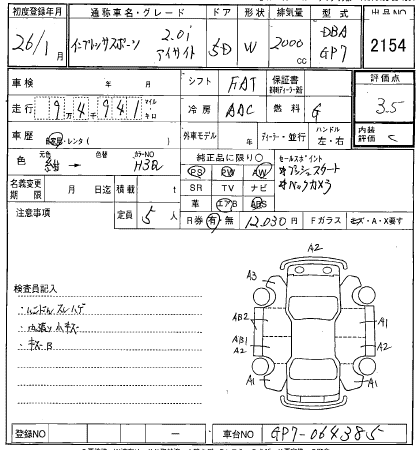 初度登録年月 通称車名・グレード ドア 形状 排気量 型式 出品NO
26/1月 インプレッサスポーツ 2.0i アイサイト 5D W 2000cc DBA GP7 2154
車検 年 月 シフト FAT 保証書 評価点
走行 9万4941 マイル キロ 冷房 AAC 燃料 G 3.5
車歴 自家用・レンタ( ) 外車モデル 年 ディーラー・並行 ハンドル 左・右 内装 C
色 元色 紺 → 色替 カラーNO H3Q 純正品に限り○ セールスポイント
名義変更期限 月 日迄 積載 t PS PW AW *プッシュスタート
SR TV ナビ *バックカメラ
注意事項 定員 5人 革 エアB ABS
R券 有 無 12,030円 Fガラス キズ・A・X要す
A2
A3
検査員記入
・ハンドルスレハゲ AB2 A2 A1
・内張りムキズ AB1 A2 A2
・キズB A1 A1
登録NO ー 車台NO GP7-064385